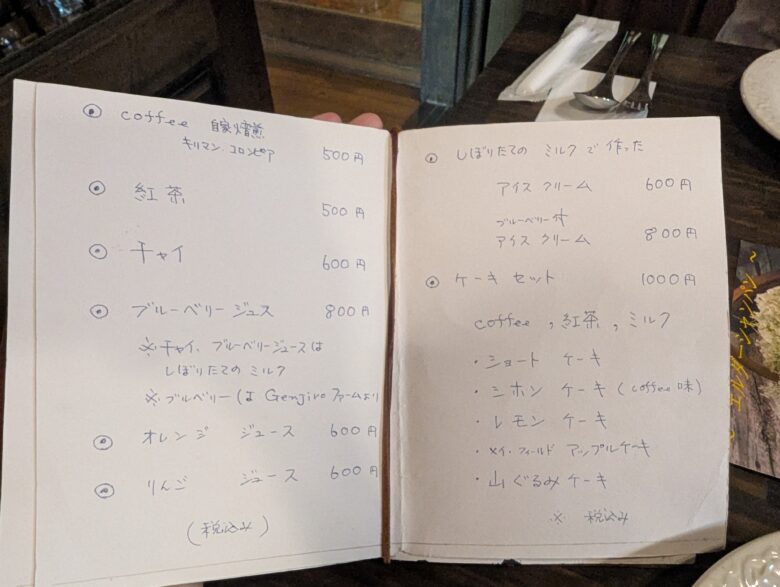 ◉ coffee 自家焙煎
キリマン コロンビア 500円
◉ 紅茶 500円
◉ チャイ 600円
◉ ブルーベリージュス 800円
※チャイ、ブルーベリージュースは
しぼりたてのミルク
※ブルベリーは Genjiro ファームより
◉ オレンジ ジュース 600円
◉ りんご ジュース 600円
(税込み)
◉ しぼりたての ミルクで 作った
アイス クリーム 600円
ブルーベリー付
アイス クリーム 800円
◉ ケーキ セット 1000円
coffee , 紅茶 , ミルク
・ショート ケーキ
・シホン ケーキ (coffee味)
・レモン ケーキ
・メイ・フィールド アップルケーキ
・山ぐるみケーキ
※ 税込み
~ エルダーシャンパン ~